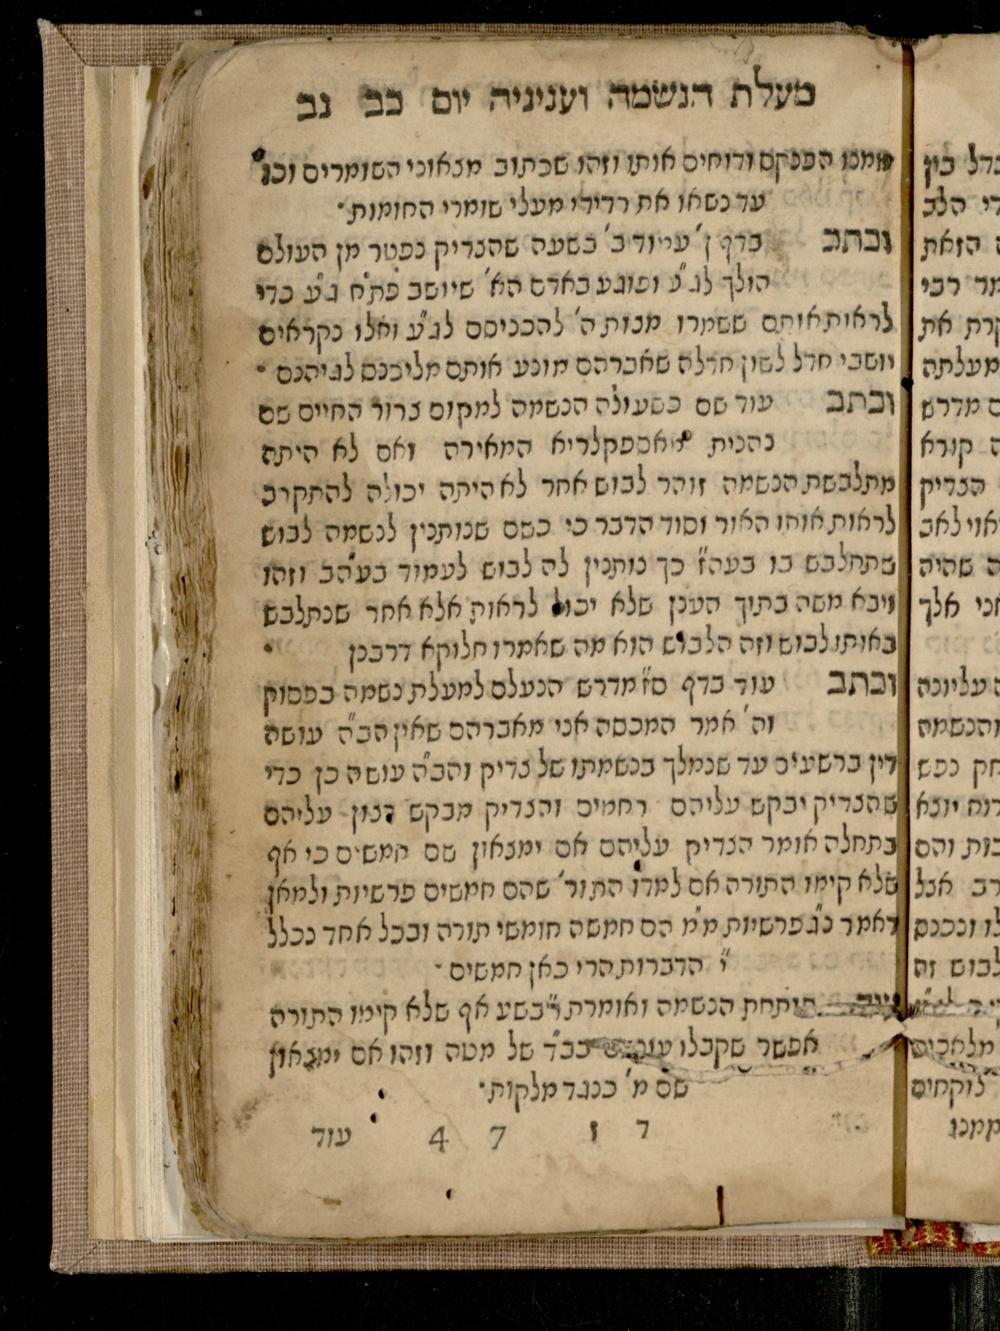 מעלת הנשמה ועניניה יום כב נב
ממנו הפנקס ודוחים אותו וזהו שכתוב מצאוני השומרים וכו'
עד נשאו את רדידי מעלי שומרי החומות
וכתב בדף ן' עמוד ב' בשעה שהצדיק נפטר מן העולם
הולך לג"ע ופוגע באדם הא' שיושב פתח ג"ע כדי
לראות אותם ששמרו מצות ה' להכניסם לג"ע ואלו נקראים
יושבי חדל לשון חדלה שאברהם מונע אותם מליכנס לגיהנם
וכתב עוד שם כשעולה הנשמה למקום צרור החיים שם
נהנית מאספקלריא המאירה ואם לא היתה
מתלבשת הנשמה זוהר לבוש אחר לא היתה יכולה להתקרב
לראות אותו האור וסוד הדבר כי כשם שנותנין לנשמה לבוש
שתתלבש בו בעה"ז כך נותנין לה לבוש לעמוד בעה"ב וזהו
ויבא משה בתוך הענן שלא יכול לראות אלא אחר שנתלבש
באותו לבוש וזה הלבוש הוא מה שאמרו חלוקא דרבנן
וכתב עוד בדף ס"ז מדרש הנעלם למעלת נשמה בפסוק
וה' אמר המכסה אני מאברהם שאין הב"ה עושה
דין ברשעים עד שנמלך בנשמתו של צדיק והב"ה עושה כן כדי
שהצדיק יבקש עליהם רחמים והצדיק מבקש כגון עליהם
בתחלה אומר הצדיק עליהם אם ימצאון שם חמשים כי אף
שלא קימו התורה אם למדו התור' שהם חמשים פרשיות ולמאן
דאמר נ"ג פרשיות מ"מ הם חמשה חומשי תורה ובכל אחד נכלל
י' הדברות הרי כאן חמשים
פותחת הנשמה ואומרת רבש"ע אף שלא קימו התורה
אפשר שקבלו עונשם בב"ד של מטה וזהו אם ימצאון
שם מ' כנגד מלקות
ד ז 47 עוד